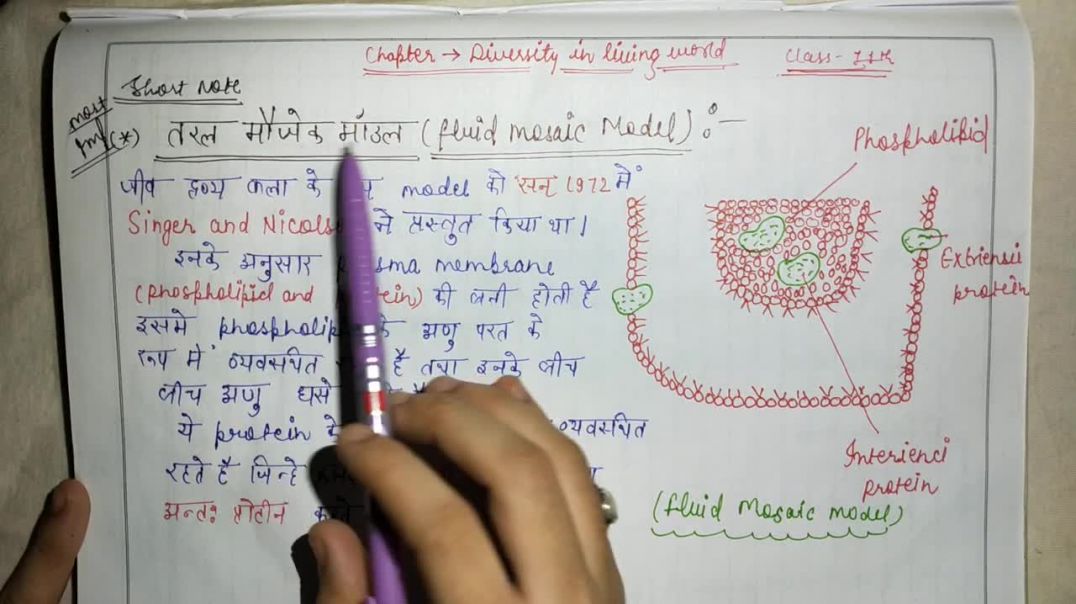 Chapter → Diversity in living world
Class - 11th
Short Note
most
Imp (*) तरल मौजेक मॉडल (fluid mosaic Model) :-
जीव द्रव्य कला के model को सन् 1972 में
Singer and Nicols ने प्रस्तुत किया था।
इनके अनुसार membrane
(phospholipid and ) की बनी होती है
इसमे के अणु परत के
रूप में व्यवस्थित है तथा इनके बीच
बीच अणु घसे
ये protein व्यवस्थित
रहते है जिन्हे
अन्तः प्रोटीन
Phospholipid
Extriensii
protein
Interienci
protein
(fluid Mosaic model)